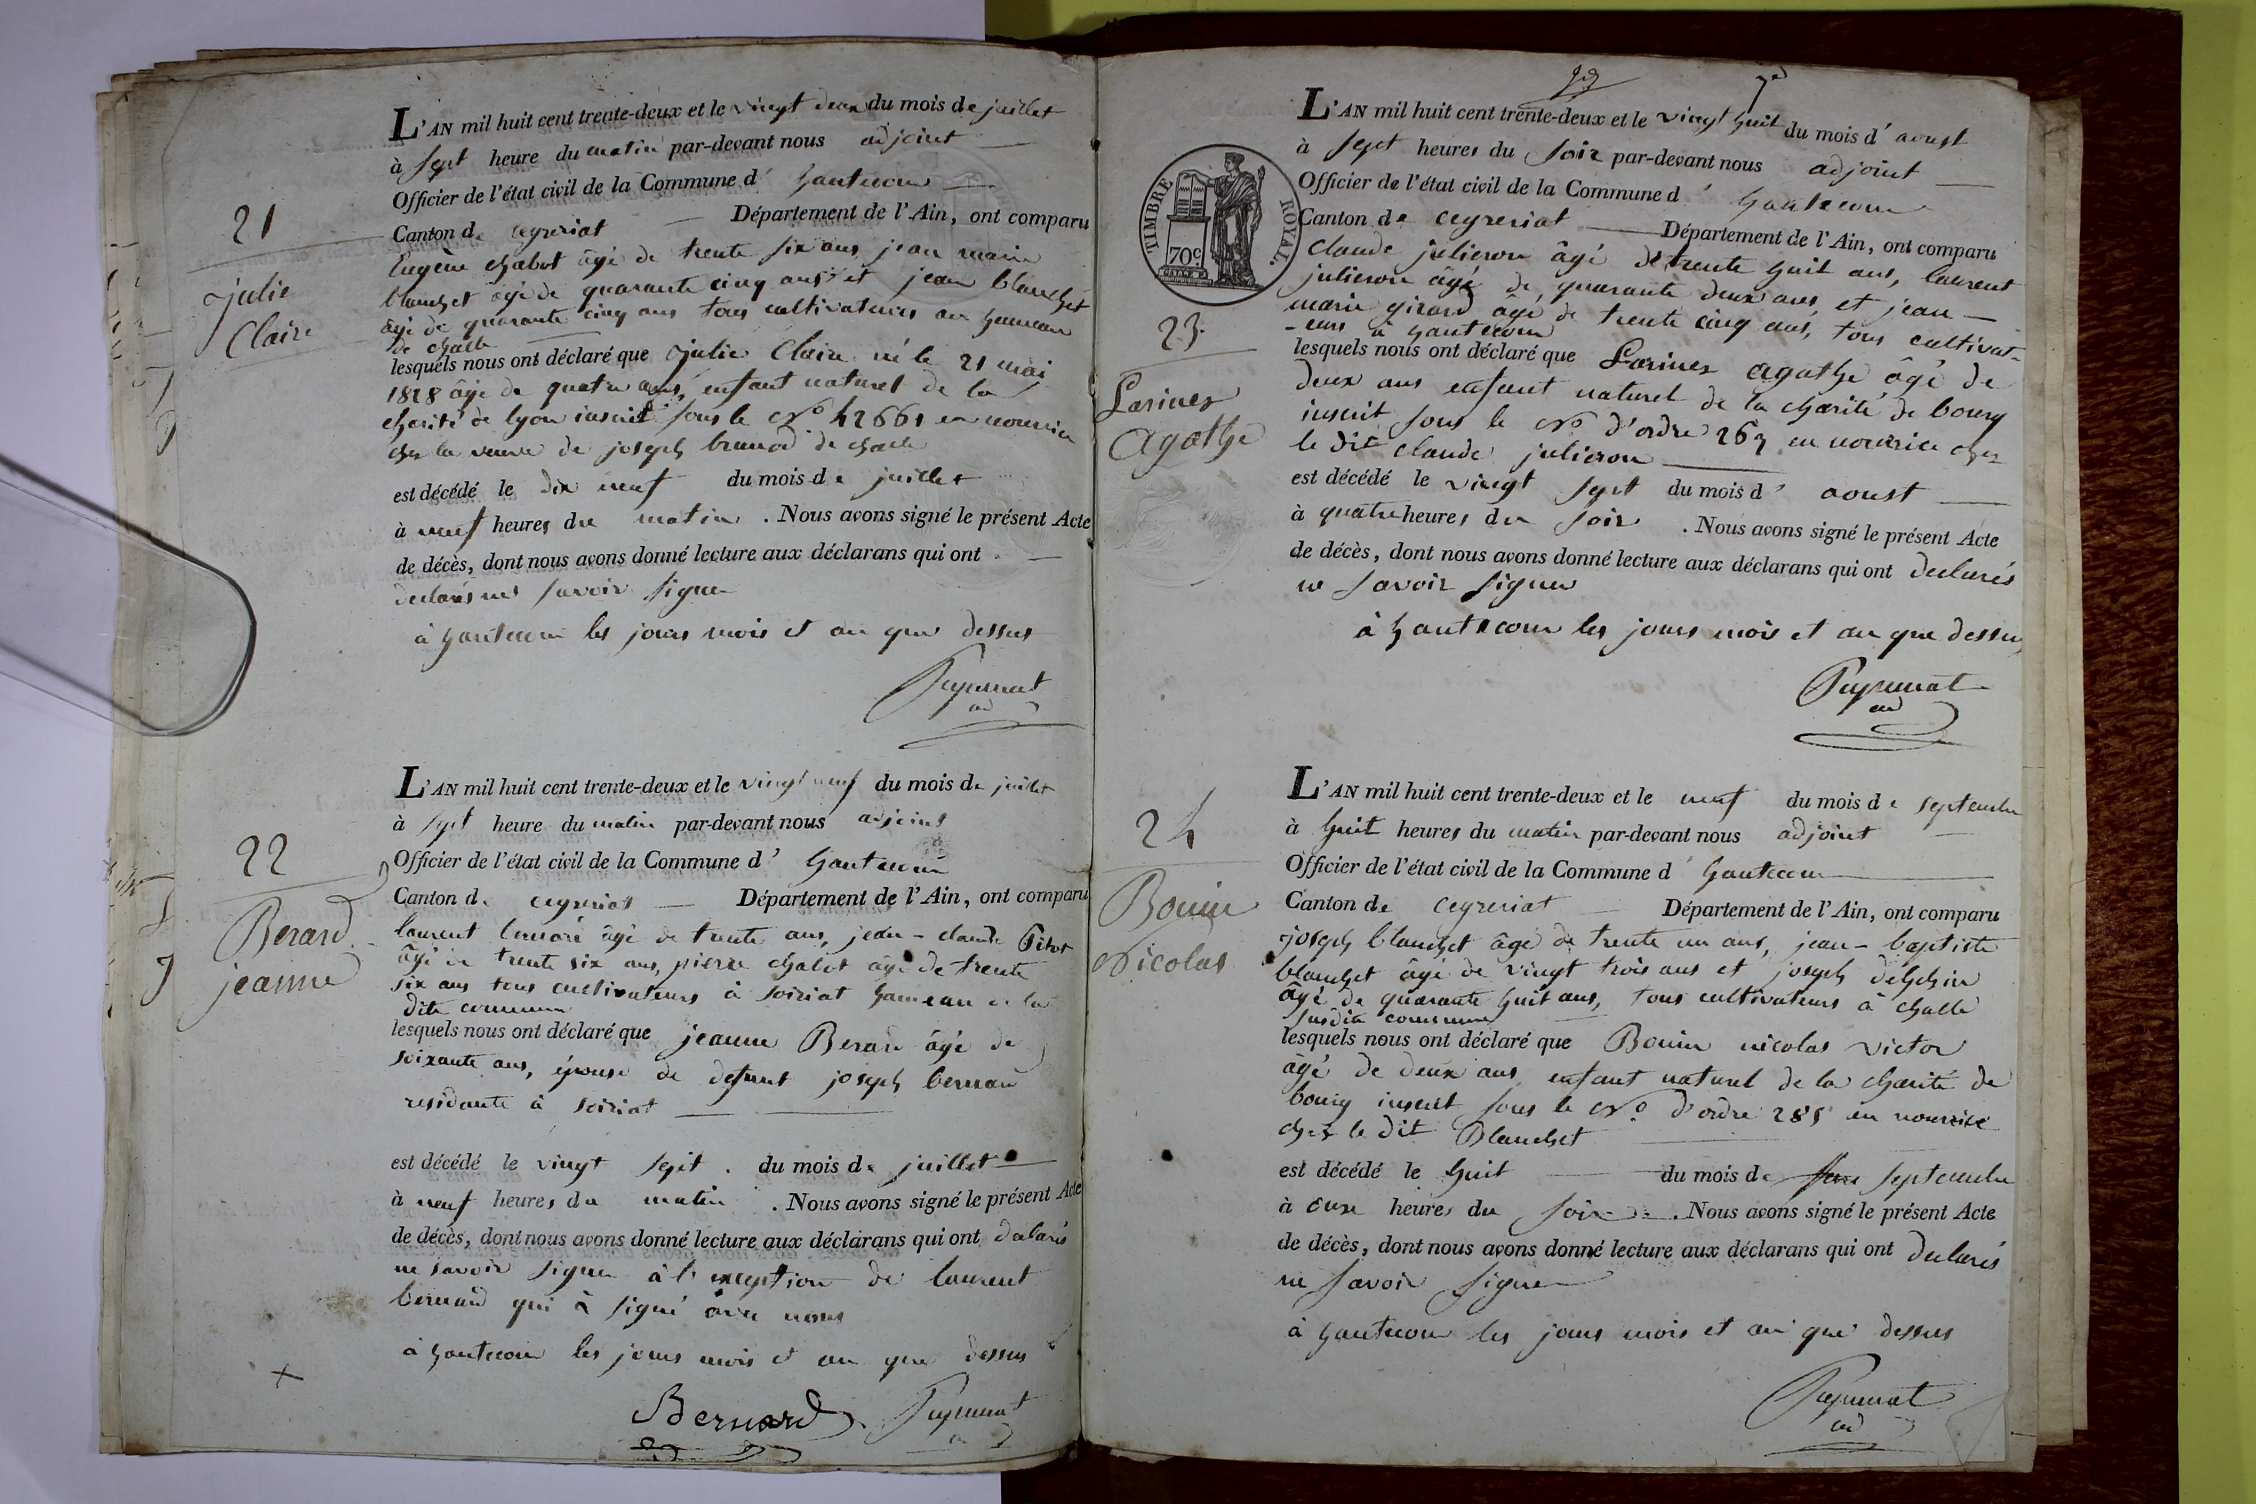 21
julie
Claire
L'AN mil huit cent trente-deux et le vingt deux du mois de juillet
à sept heure du matin par-devant nous adjoint
Officier de l'état civil de la Commune d' hautecour
Canton de ceyzeriat Département de l'Ain, ont comparu
Eugène chabot âgé de trente six ans, jean marie
blanchet âgé de quarante cinq ans et jean blanchet
âgé de quarante cinq ans tous cultivateurs au hameau
de challe
lesquels nous ont déclaré que julie Claire né le 21 mai
1828 âgé de quatre ans, enfant naturel de la
charité de lyon inscrit sous le No 42661 en nourrice
chez la veuve de joseph de challe
est décédé le dix neuf du mois de juillet
à neuf heures du matin . Nous avons signé le présent Acte
de décès, dont nous avons donné lecture aux déclarans qui ont
declarés ne savoir signer
à hautecour les jours mois et an que dessus
22
Berard
jeanne
L'AN mil huit cent trente-deux et le vingt neuf du mois de juillet
à sept heure du matin par-devant nous adjoint
Officier de l'état civil de la Commune d' hautecour
Canton de ceyzeriat Département de l'Ain, ont comparu
laurent bernard âgé de trente ans, jean-claude
âgé de trente six ans, pierre chabot âgé de trente
six ans tous cultivateurs à soiriat hameau de la
dite commune
lesquels nous ont déclaré que jeanne Berard âgé de
soixante ans, épouse de defunt joseph bernard
residante à soiriat
est décédé le vingt sept . du mois de juillet
à neuf heures du matin . Nous avons signé le présent Acte
de décès, dont nous avons donné lecture aux déclarans qui ont declarés
ne savoir signer à l'exception de laurent
bernard qui à signé avec nous
à hautecour les jours mois et an que dessus
Bernard
TIMBRE ROYAL
70c
23
Larines
agathe
L'AN mil huit cent trente-deux et le vingt huit du mois d' aoust
à sept heures du soir par-devant nous adjoint
Officier de l'état civil de la Commune d' hautecour
Canton de ceyzeriat Département de l'Ain, ont comparu
claude julieron âgé de trente huit ans, laurent
julieron âgé de quarante deux ans et jean-
marie girard âgé de trente cinq ans, tous cultivat-
-eurs à hautecour
lesquels nous ont déclaré que Larines agathe âgé de
deux ans enfant naturel de la charité de bourg
inscrit sous le No d'ordre 263 en nourrice chez
le dit claude julieron
est décédé le vingt sept du mois d' aoust
à quatre heures du soir . Nous avons signé le présent Acte
de décès, dont nous avons donné lecture aux déclarans qui ont declarés
ne savoir signer
à hautecour les jours mois et an que dessus
24
Bouin
Nicolas
L'AN mil huit cent trente-deux et le neuf du mois de septembre
à huit heures du matin par-devant nous adjoint
Officier de l'état civil de la Commune d' hautecour
Canton de ceyzeriat Département de l'Ain, ont comparu
joseph blanchet âgé de trente un ans, jean-baptiste
blanchet âgé de vingt trois ans et joseph delphin
âgé de quarante huit ans, tous cultivateurs à challe
susdite commune
lesquels nous ont déclaré que Bouin nicolas victor
âgé de deux ans enfant naturel de la charité de
bourg inscrit sous le No d'ordre 285 en nourrice
chez le dit Blanchet
est décédé le huit du mois de septembre
à onze heures du soir . Nous avons signé le présent Acte
de décès, dont nous avons donné lecture aux déclarans qui ont declarés
ne savoir signer
à hautecour les jours mois et an que dessus